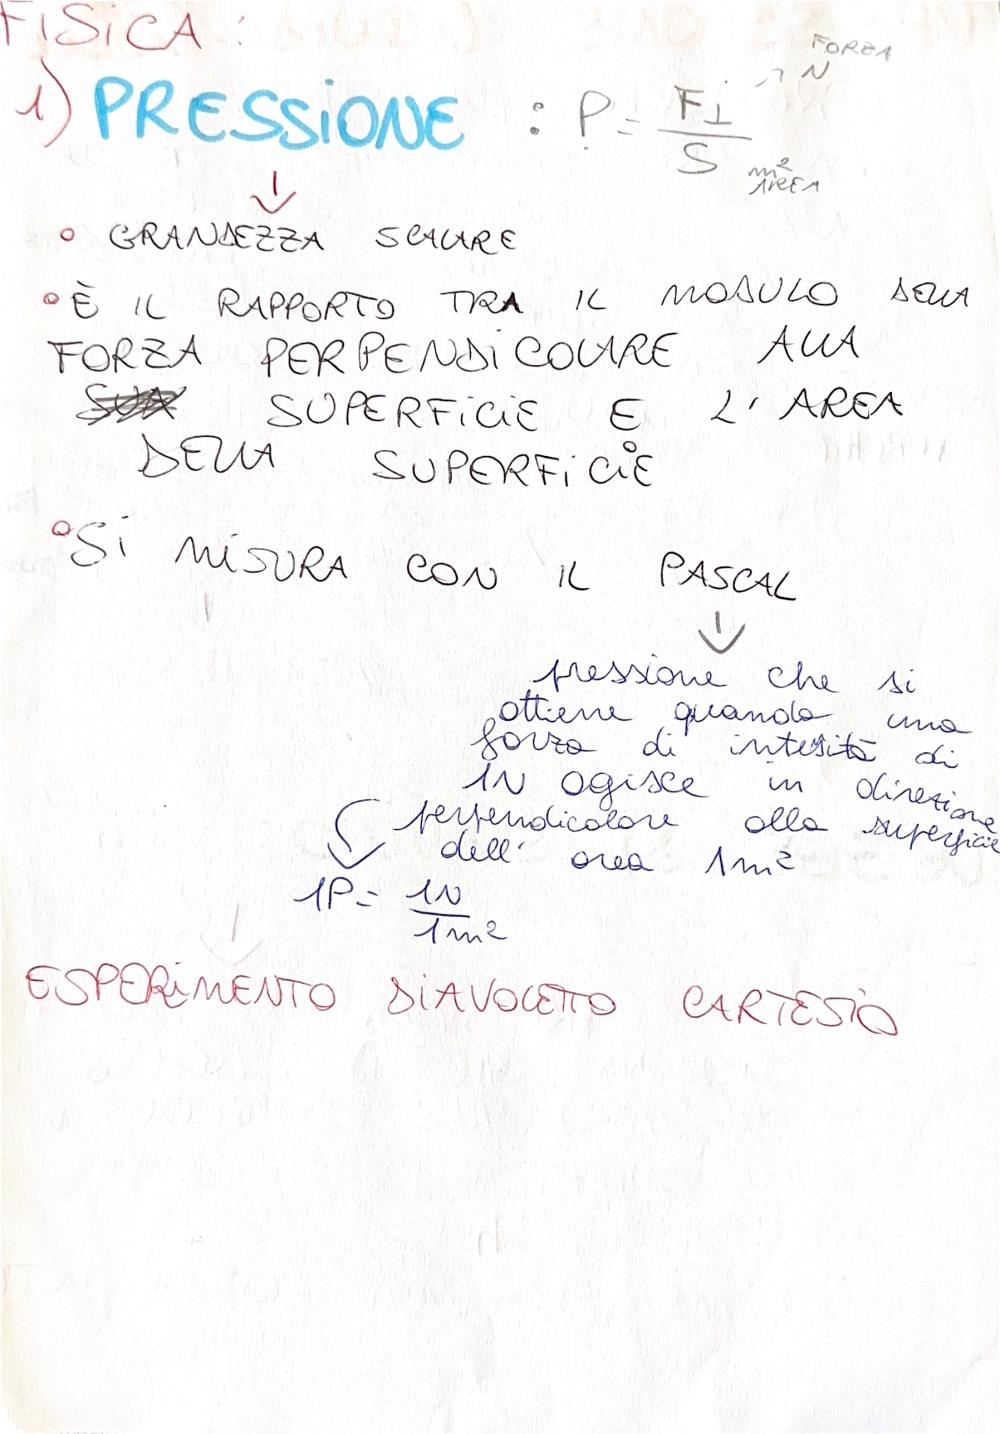 FISICA:
FORZA
1) PRESSIONE : P = F⊥ → N
S m² AREA
↓
• GRANDEZZA SCALARE
• È IL RAPPORTO TRA IL MODULO DELLA
FORZA PERPENDICOLARE ALLA
SUPERFICIE E L'AREA
DELLA SUPERFICIE
• Si MISURA CON IL PASCAL
↓
pressione che si
ottiene quando una
forza di intesità di
1N agisce in direzione
perpendicolare alla superficie
dell' area 1m²
1P = 1N
1m²
ESPERIMENTO DIAVOLETTO CARTESIO